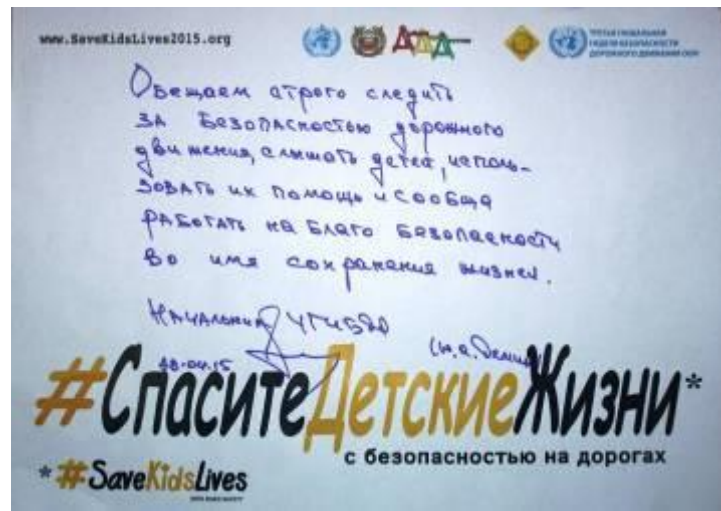 www.SaveKidsLives2015.org
ТРЕТЬЯ ГЛОБАЛЬНАЯ
НЕДЕЛЯ БЕЗОПАСНОСТИ
ДОРОЖНОГО ДВИЖЕНИЯ ООН
Обещаем строго следить
за безопасностью дорожного
движения, слышать детей, исполь-
зовать их помощь и сообща
работать на благо безопасности
во имя сохранения жизней.
Начальник УГИБДД
28.04.15
#СпаситеДетскиеЖизни*
с безопасностью на дорогах
* #SaveKidsLives